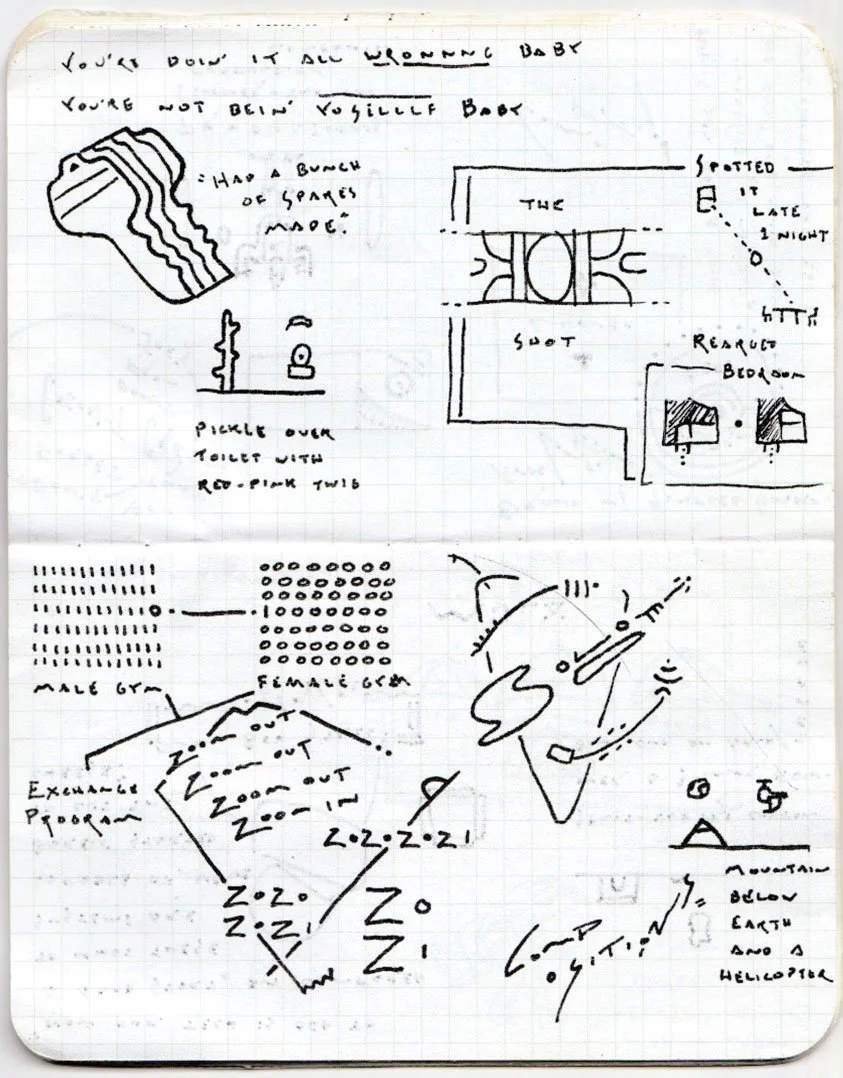 YOU'RE DOIN' IT ALL WRONNNG BABY
YOU'RE NOT BEIN' BABY
"HAD A BUNCH
OF SPARES
MADE."
PICKLE OVER
TOILET WITH
RED-PINK TWIG
THE
SHOT
SPOTTED
IT
LATE
1 NIGHT
BEDROOM
MALE GYM
FEMALE GYM
EXCHANGE
PROGRAM
ZOOM OUT
ZOOM OUT
ZOOM OUT
ZOOM IN
Z0.Z0.Z0.Z1
Z0Z0
Z0Z1
Z0
Z1
COMP
OSITION
MOUNTAIN
BELOW
EARTH
AND A
HELICOPTER